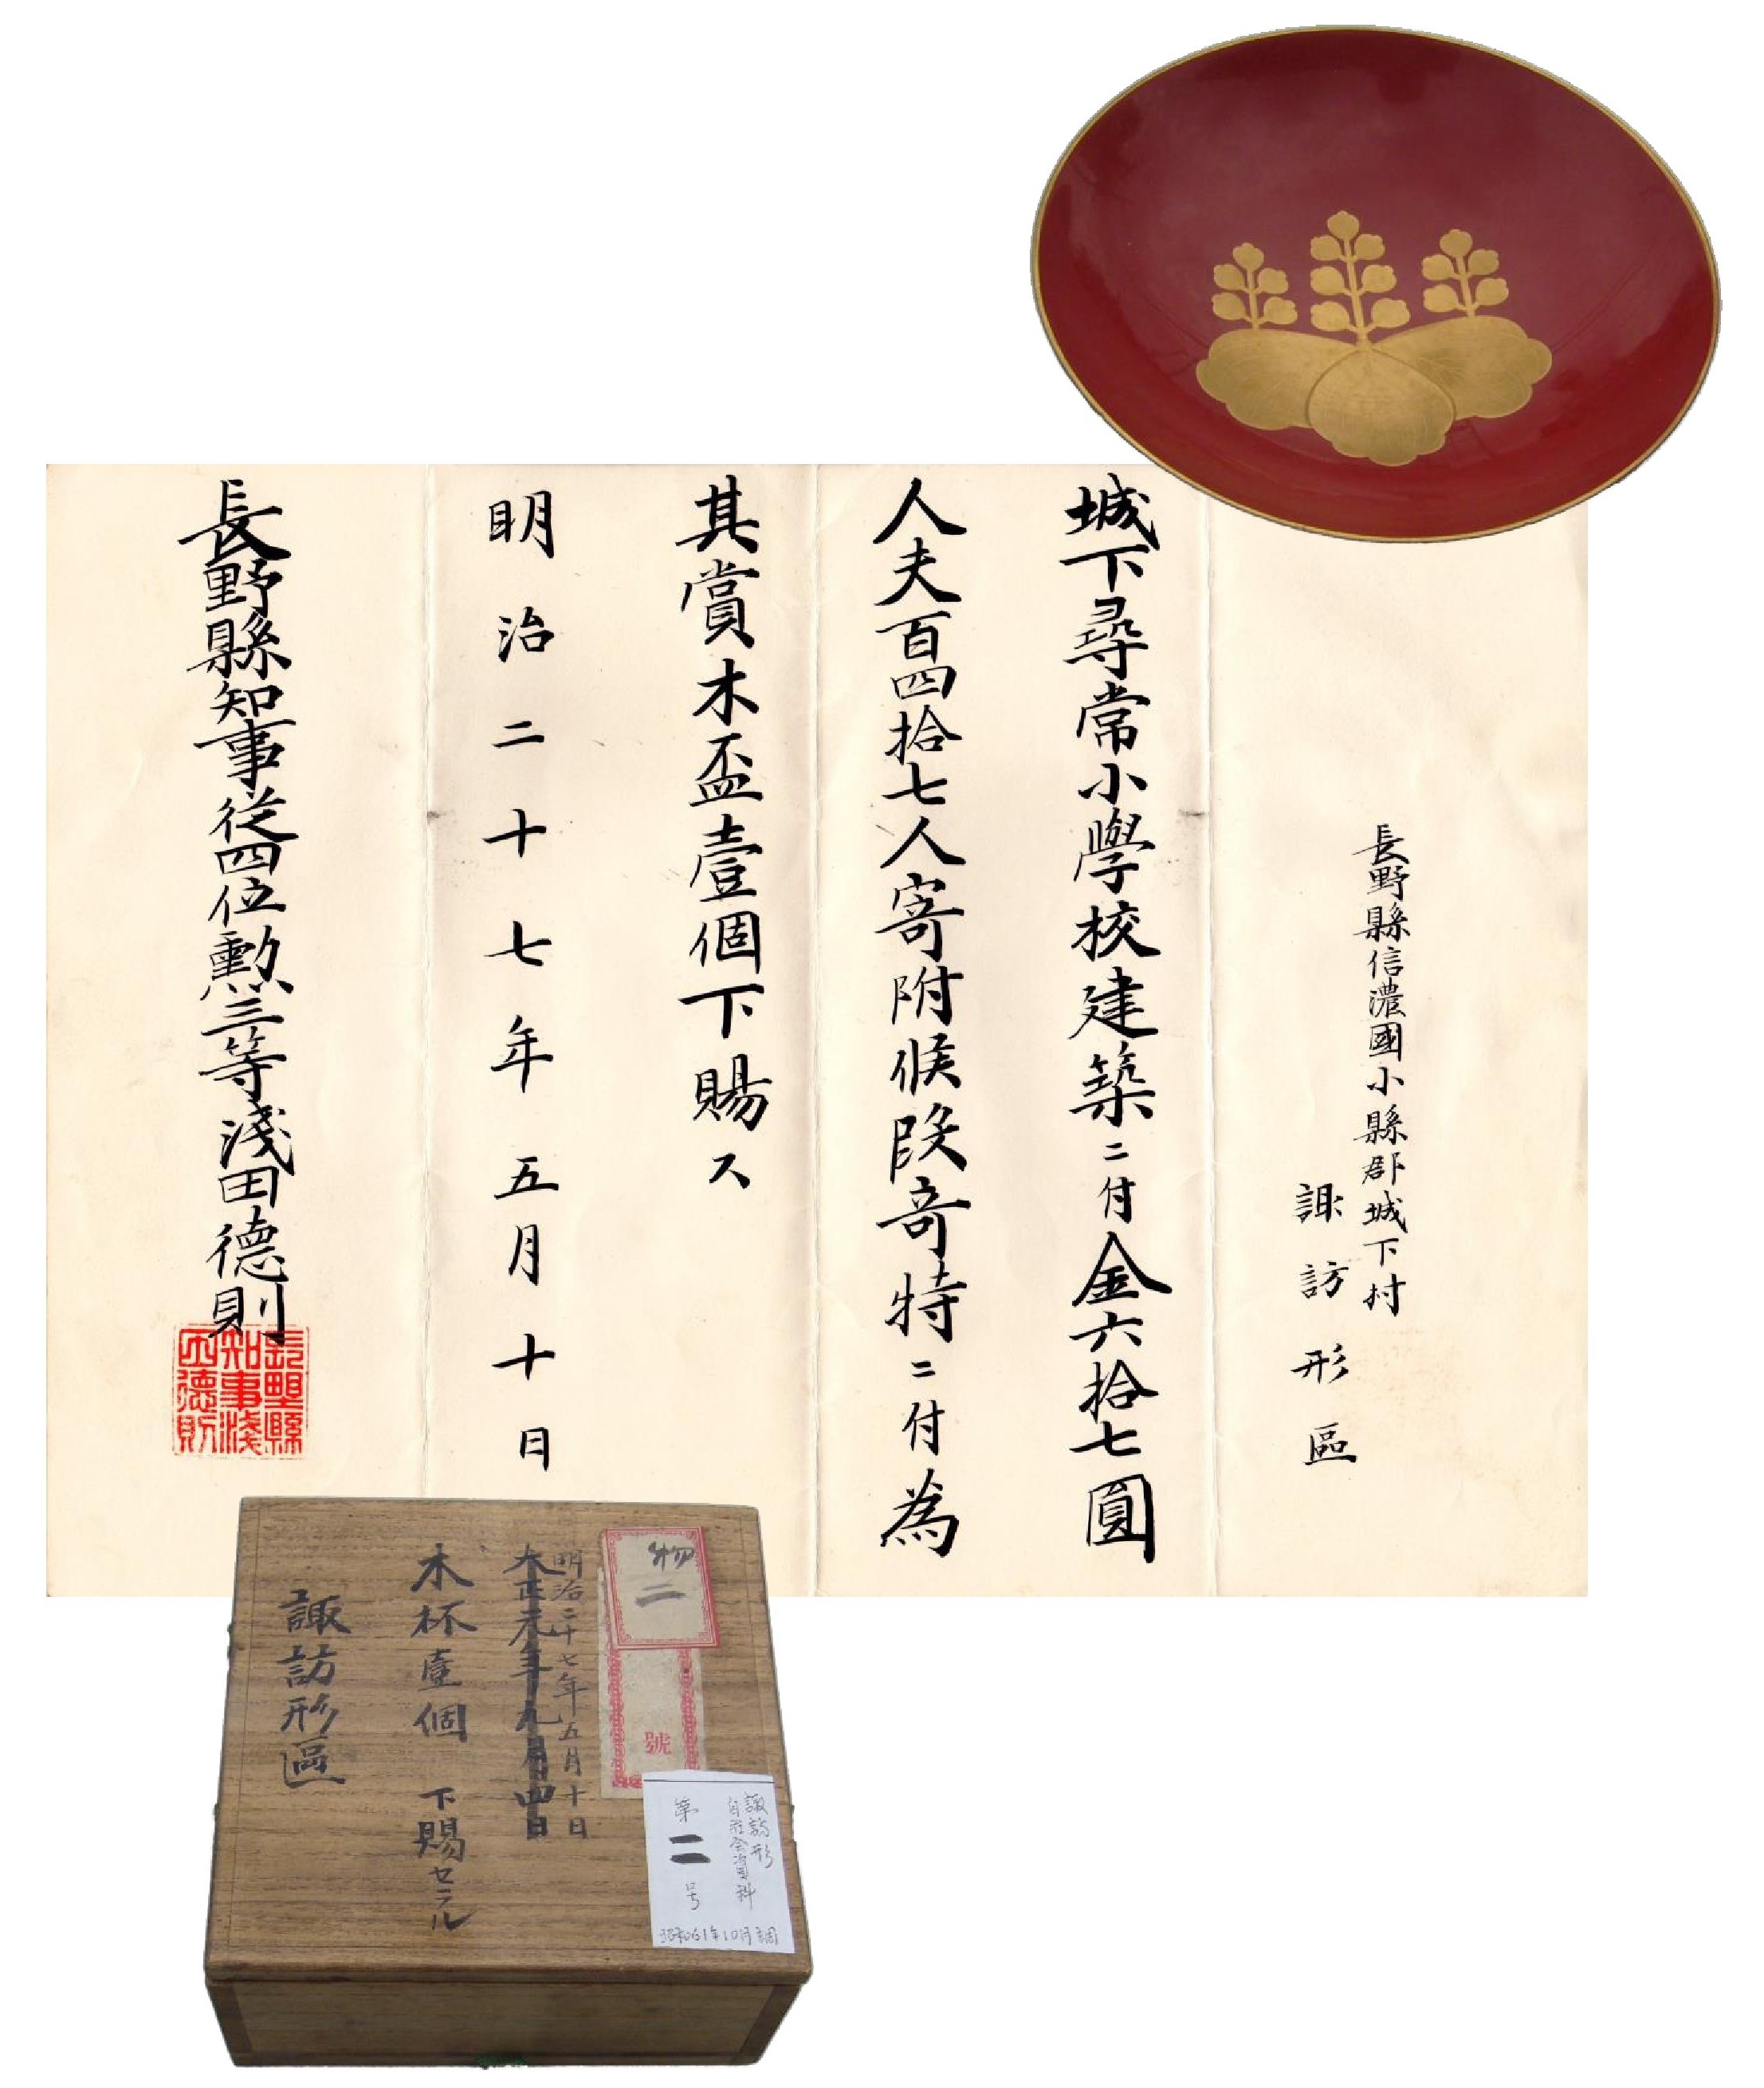 長野縣信濃國小縣郡城下村
諏訪形區
城下尋常小學校建築ニ付金六拾七圓
人夫百四拾七人寄附候段奇特ニ付為
其賞木盃壹個下賜ス
明治二十七年五月十日
長野縣知事従四位勲三等淺田德則
長野縣
知事淺
田德則
物二
號
明治二十七年五月十日
大正元年九月四日
木杯壹個 下賜セラル
諏訪形區
諏訪形
自治会資料
第二号
昭和61年10月調